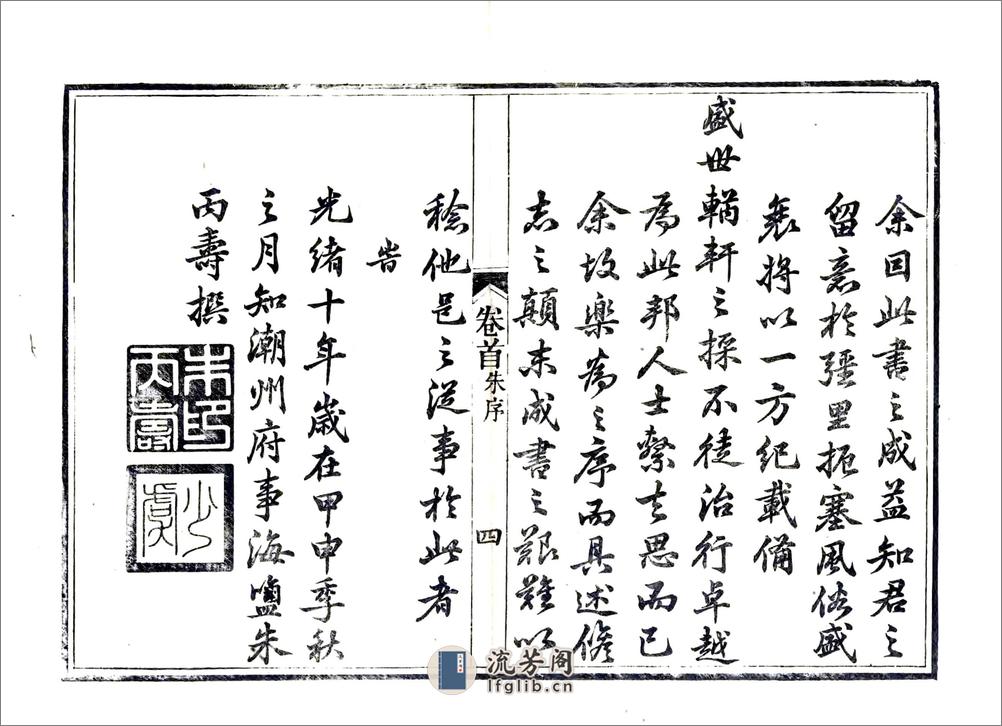 余因此書之成益知君之
留意於彊里扼塞風俗盛
衰將以一方紀載備
盛世輶軒之採不徒治行卓越
為此邦人士繫去思而已
余故樂為之序而具述脩
志之顛末成書之艱難以
卷首朱序 四
稔他邑之從事於此者
旹
光緒十年歲在甲申季秋
之月知潮州府事海鹽朱
丙壽撰
朱印
丙壽
少虞
流芳阁
lfglib.cn